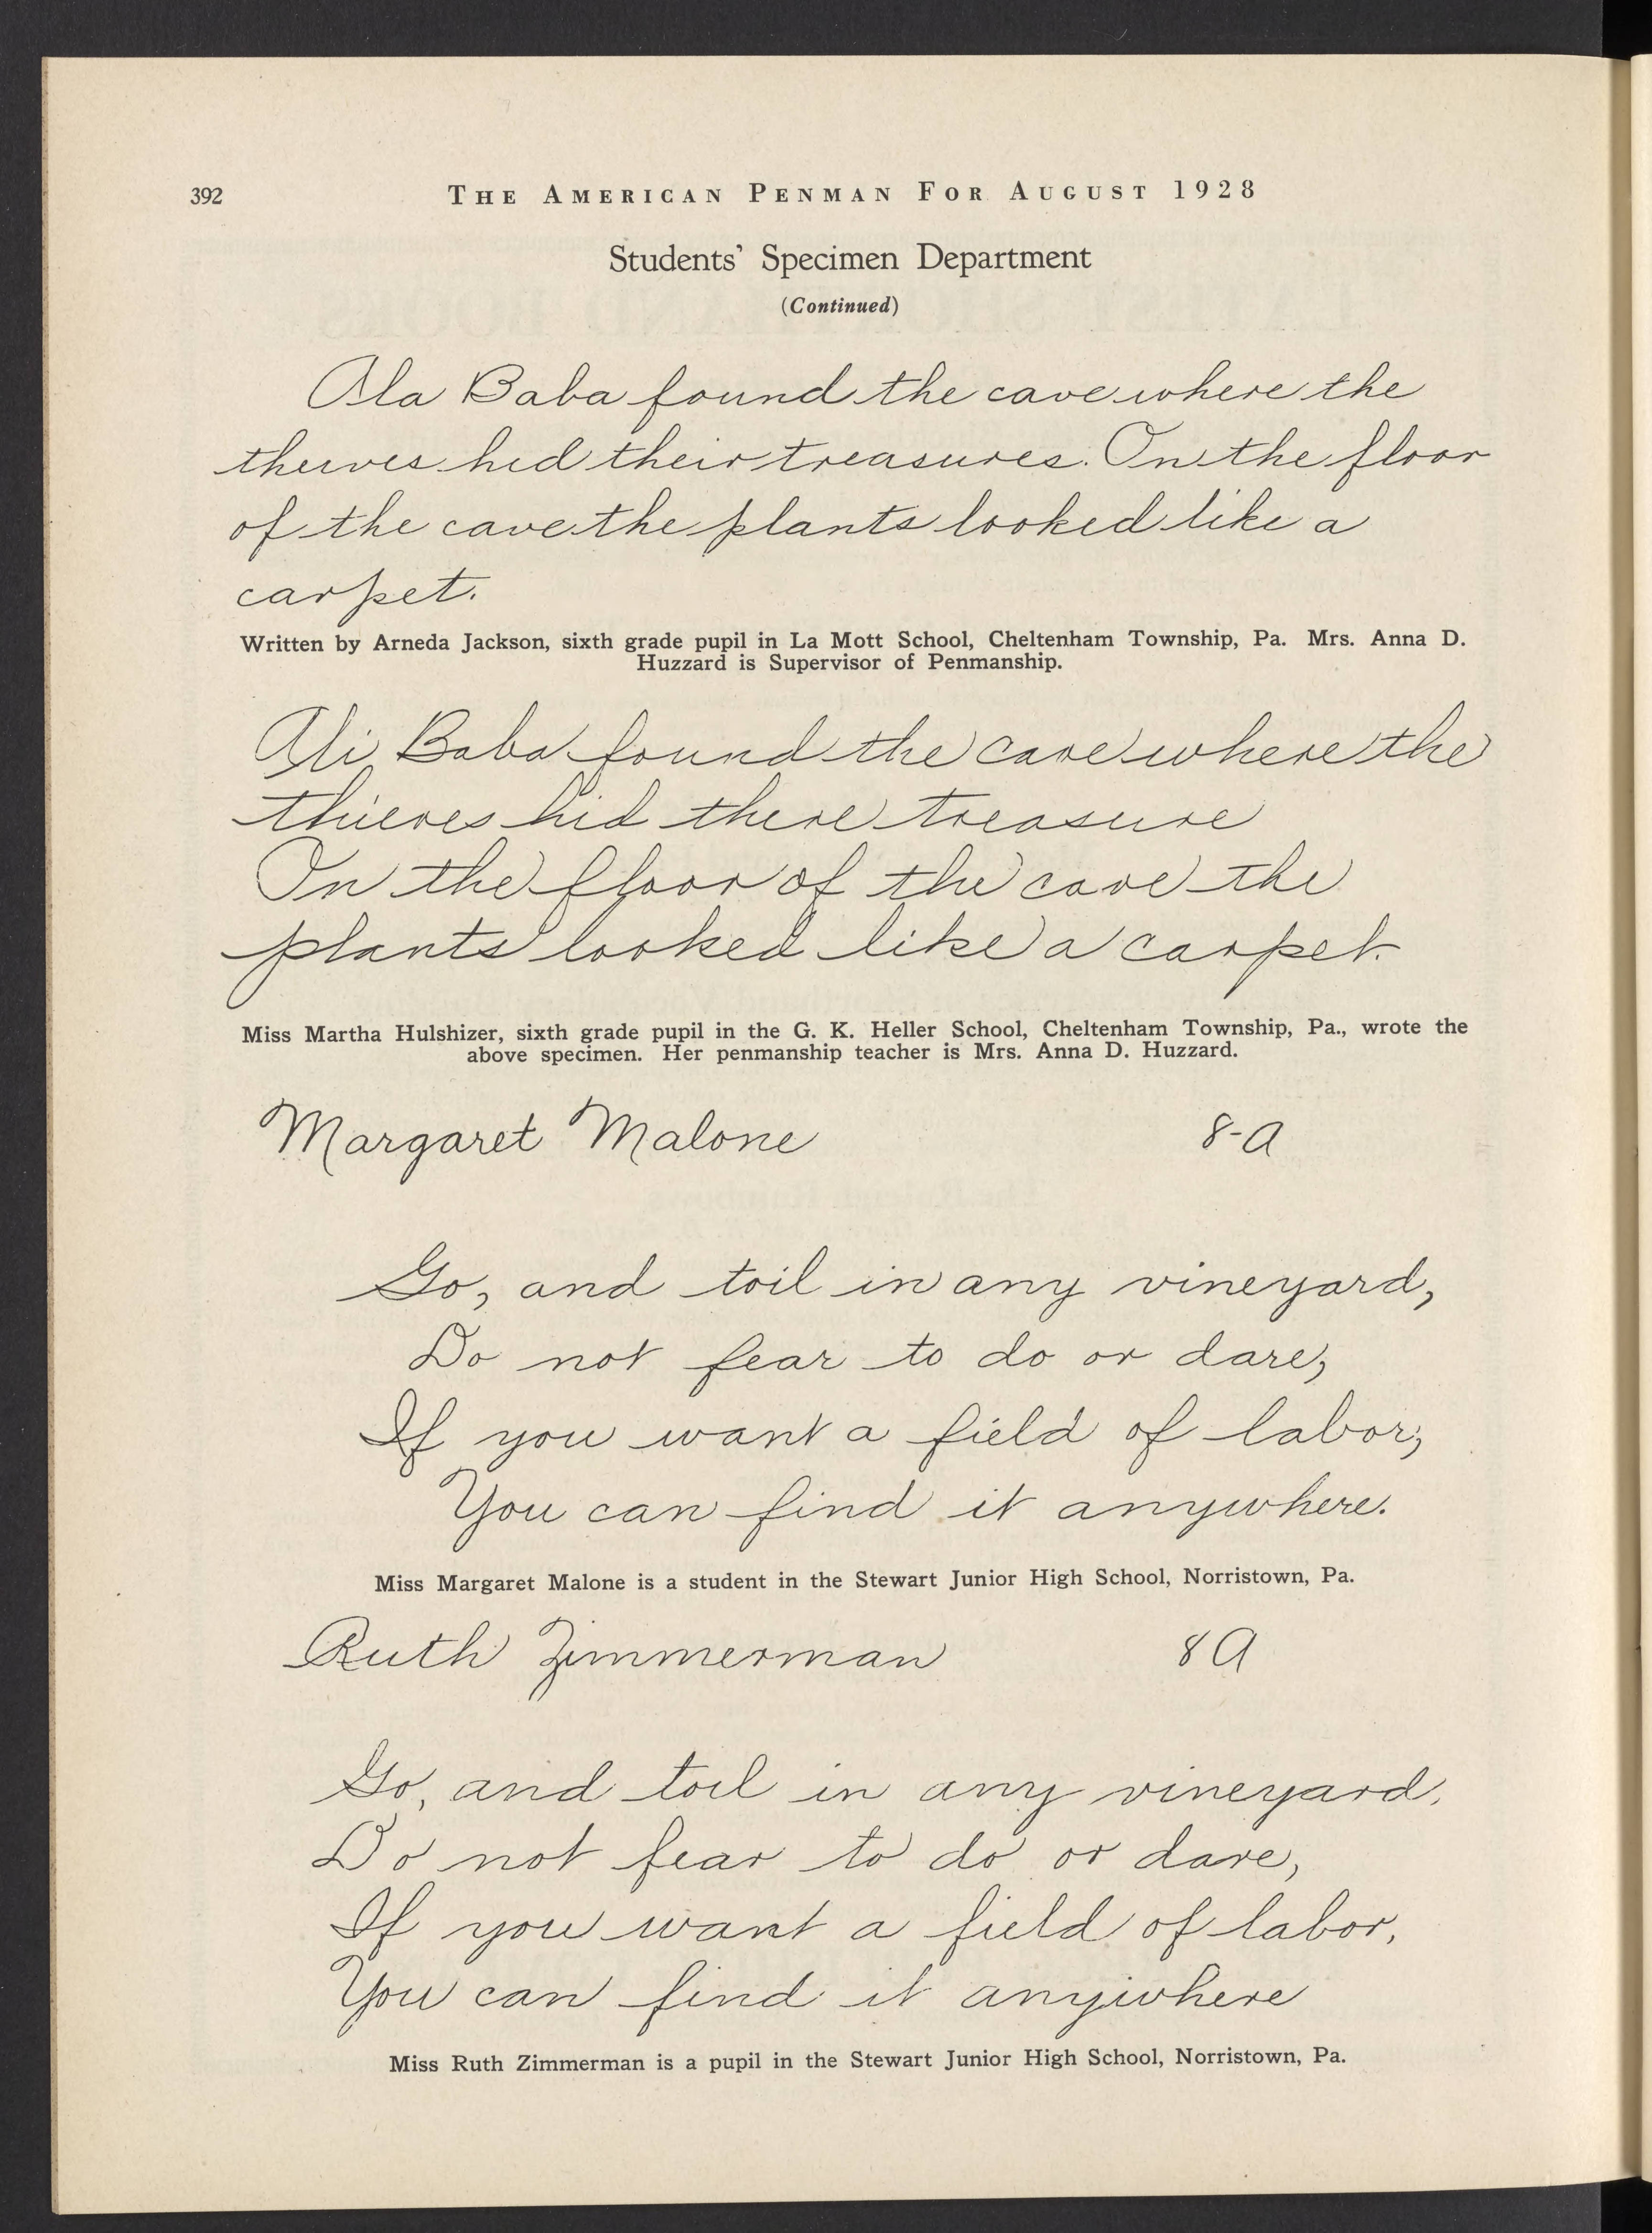 392
THE AMERICAN PENMAN FOR AUGUST 1928
Students' Specimen Department
(Continued)
Ala Baba found the cave where the
theives hid their treasures. On the floor
of the cave the plants looked like a
carpet.
Written by Arneda Jackson, sixth grade pupil in La Mott School, Cheltenham Township, Pa. Mrs. Anna D.
Huzzard is Supervisor of Penmanship.
Ali Baba found the cave where the
thieves hid there treasure
On the floor of the cave the
plants looked like a carpet.
Miss Martha Hulshizer, sixth grade pupil in the G. K. Heller School, Cheltenham Township, Pa., wrote the
above specimen. Her penmanship teacher is Mrs. Anna D. Huzzard.
Margaret Malone 8-A
Go, and toil in any vineyard,
Do not fear to do or dare,
If you want a field of labor,
You can find it anywhere.
Miss Margaret Malone is a student in the Stewart Junior High School, Norristown, Pa.
Ruth Zimmerman 8A
Go, and toil in any vineyard,
Do not fear to do or dare,
If you want a field of labor,
You can find it anywhere
Miss Ruth Zimmerman is a pupil in the Stewart Junior High School, Norristown, Pa.